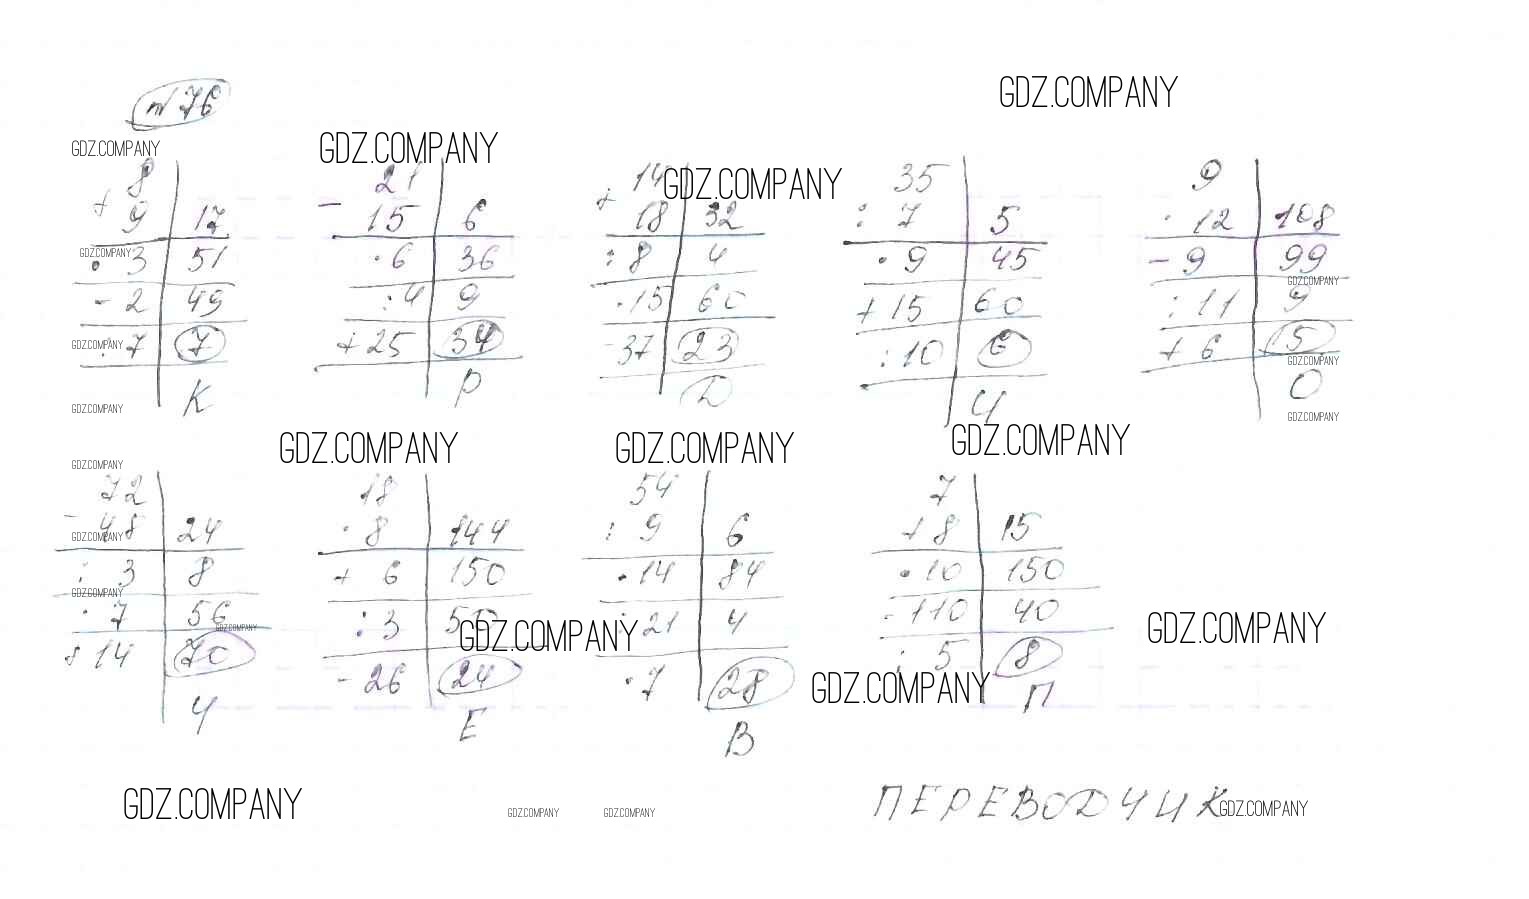 № 76
GDZ.COMPANY
GDZ.COMPANY
GDZ.COMPANY
GDZ.COMPANY
8
+ 9 | 17
· 3 | 51
- 2 | 49
: 7 | 7
К
21
- 15 | 6
· 6 | 36
: 4 | 9
+ 25 | 34
Р
14
+ 18 | 32
: 8 | 4
· 15 | 60
- 37 | 23
Д
35
: 7 | 5
· 9 | 45
+ 15 | 60
: 10 | 6
И
9
· 12 | 108
- 9 | 99
: 11 | 9
+ 6 | 15
О
GDZ.COMPANY
GDZ.COMPANY
GDZ.COMPANY
GDZ.COMPANY
GDZ.COMPANY
GDZ.COMPANY
GDZ.COMPANY
GDZ.COMPANY
GDZ.COMPANY
GDZ.COMPANY
72
- 48 | 24
: 3 | 8
· 7 | 56
+ 14 | 70
Ч
18
· 8 | 144
+ 6 | 150
: 3 | 50
- 26 | 24
Е
54
: 9 | 6
· 14 | 84
: 21 | 4
· 7 | 28
В
7
+ 8 | 15
· 10 | 150
- 110 | 40
: 5 | 8
П
GDZ.COMPANY
GDZ.COMPANY
GDZ.COMPANY
GDZ.COMPANY
GDZ.COMPANY
GDZ.COMPANY
ПЕРЕВОДЧИК
GDZ.COMPANY
GDZ.COMPANY
GDZ.COMPANY
GDZ.COMPANY